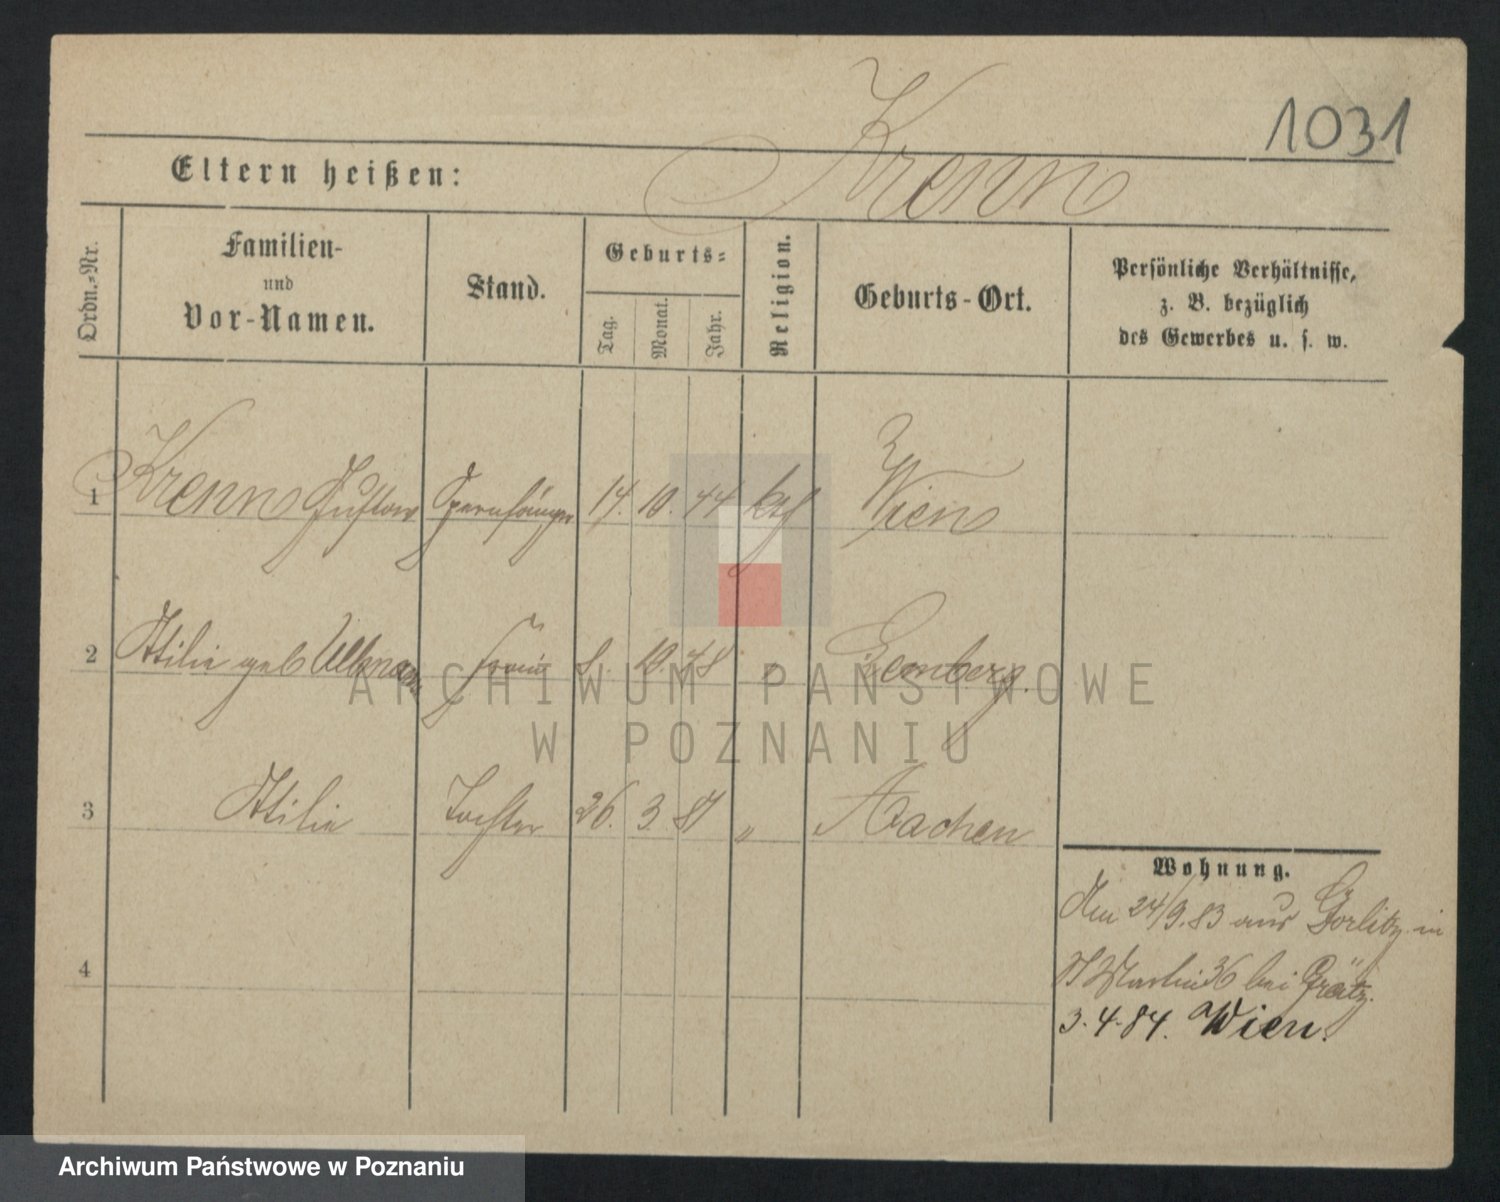 1031
Krenn
Eltern heißen:
Ordn.-Nr.
Familien-
und
Vor-Namen.
Stand.
Geburts-
Tag.
Monat.
Jahr.
Religion.
Geburts-Ort.
Persönliche Verhältnisse,
z. B. bezüglich
des Gewerbes u. s. w.
1 Krenn Gustav Opernsänger 14. 10. 44 kth Wien
2 Otilie geb Ullmann Frau 8. 10. 48 " Lemberg.
3 Otilie Tochter 26. 3. 81 " Aachen
4
Wohnung.
Den 24/9.83 aus Görlitz in
St Martin 36 bei Grätz.
3.4.84. Wien.
ARCHIWUM PAŃSTWOWE
W POZNANIU
Archiwum Państwowe w Poznaniu